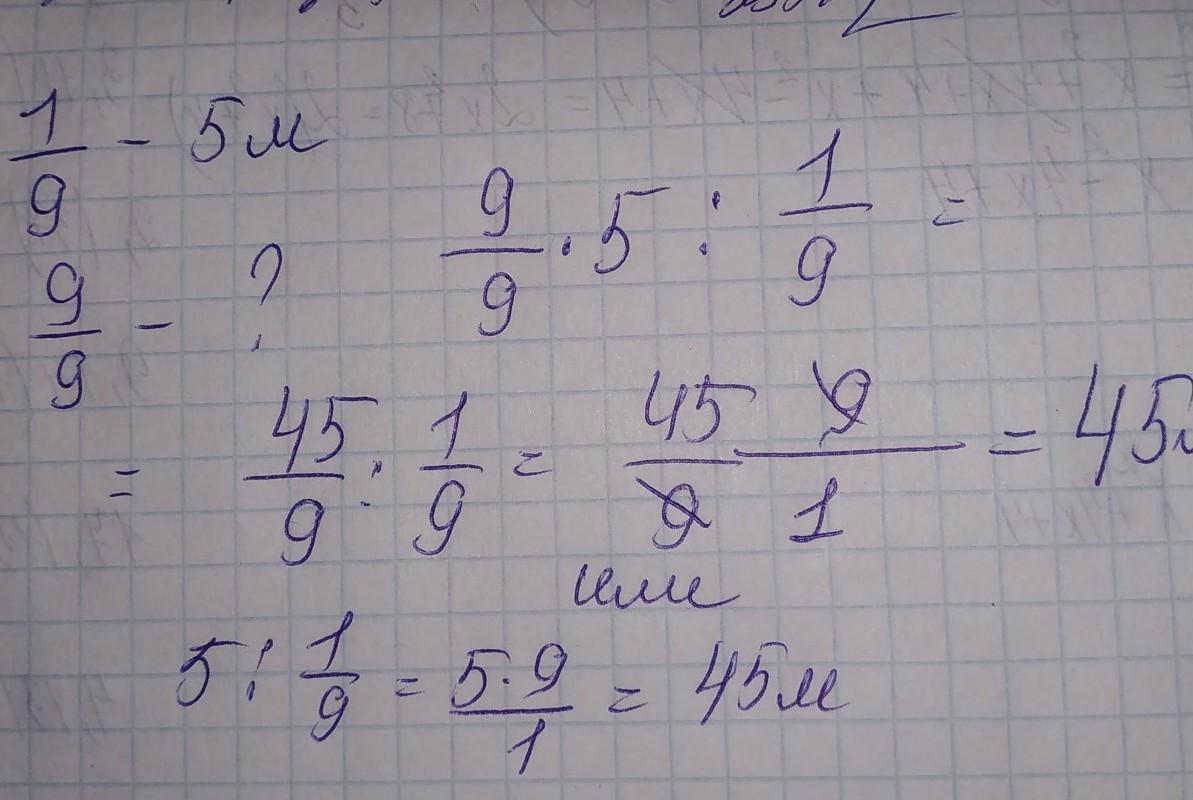 1/9 - 5м
9/9 - ?
9/9 · 5 : 1/9 =
= 45/9 : 1/9 = 45/9 9/1 = 45м
или
5 : 1/9 = 5·9/1 = 45м